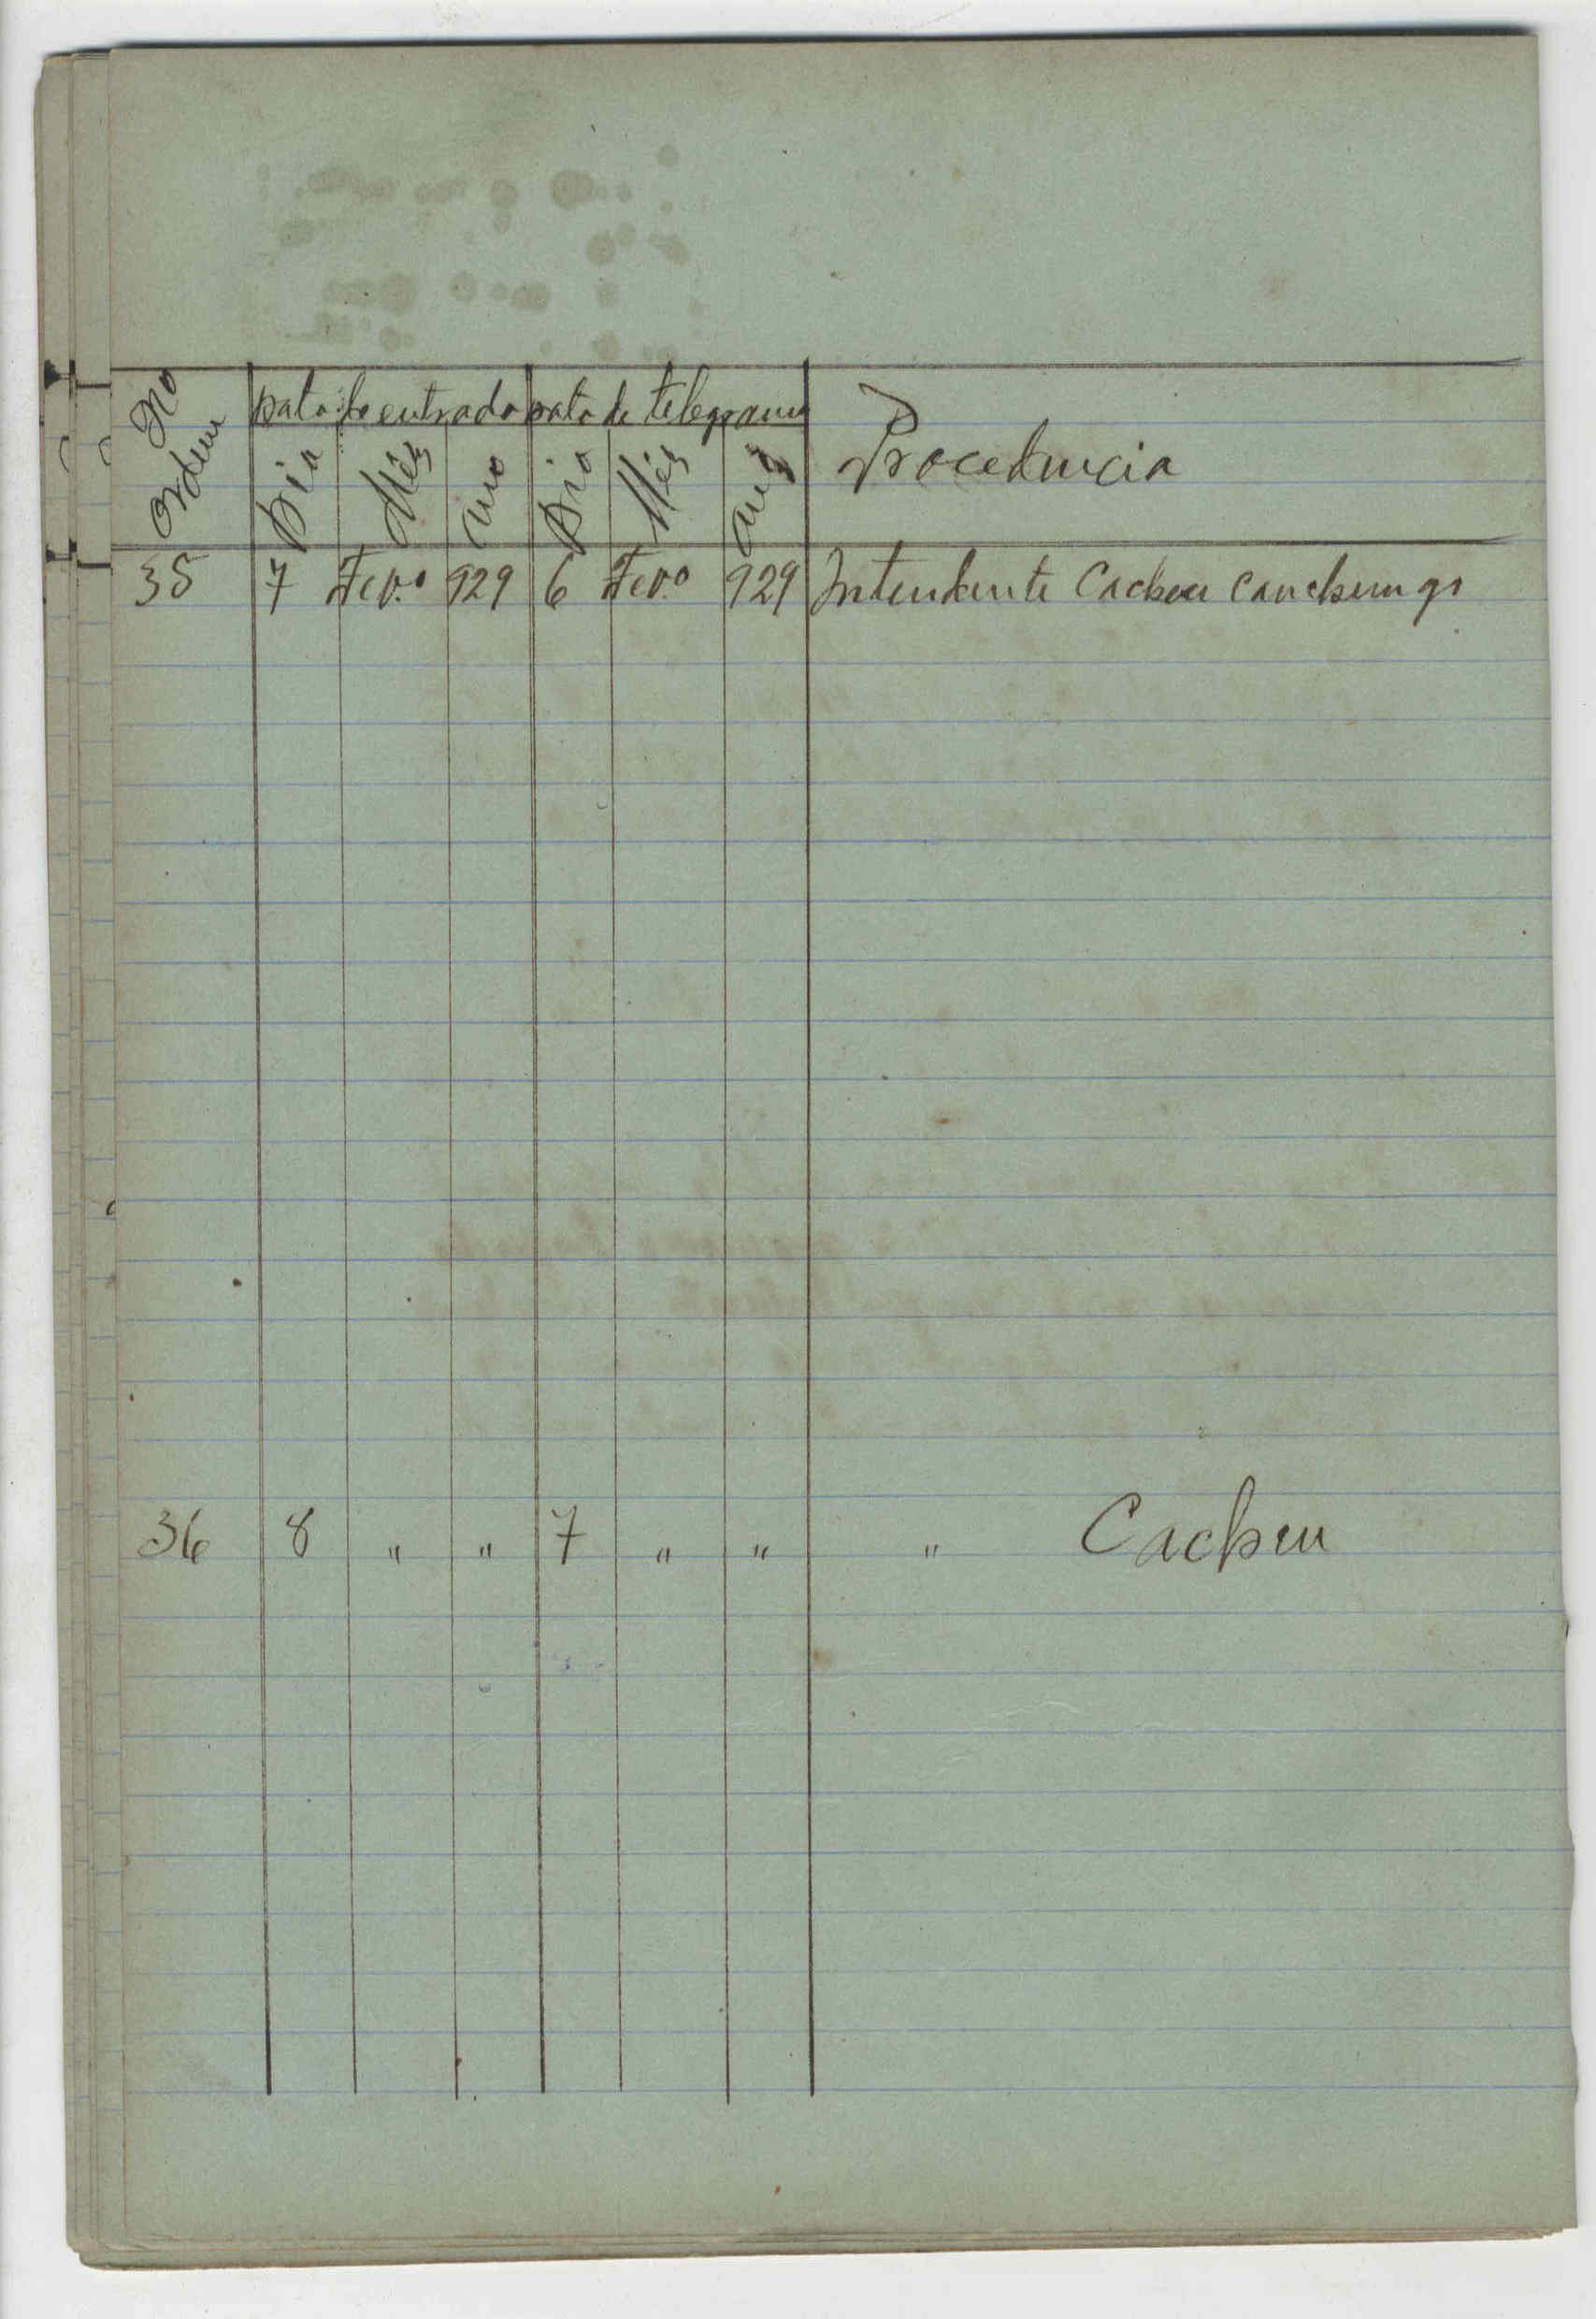 No Ordem
Data de entrada Data de telegrama
Dia Mês Ano Dia Mês Ano Procedencia
35 7 Fev.o 929 6 Fev.o 929 Intendente Cacheu Canchungo
36 8 " " 7 " " " Cacheu